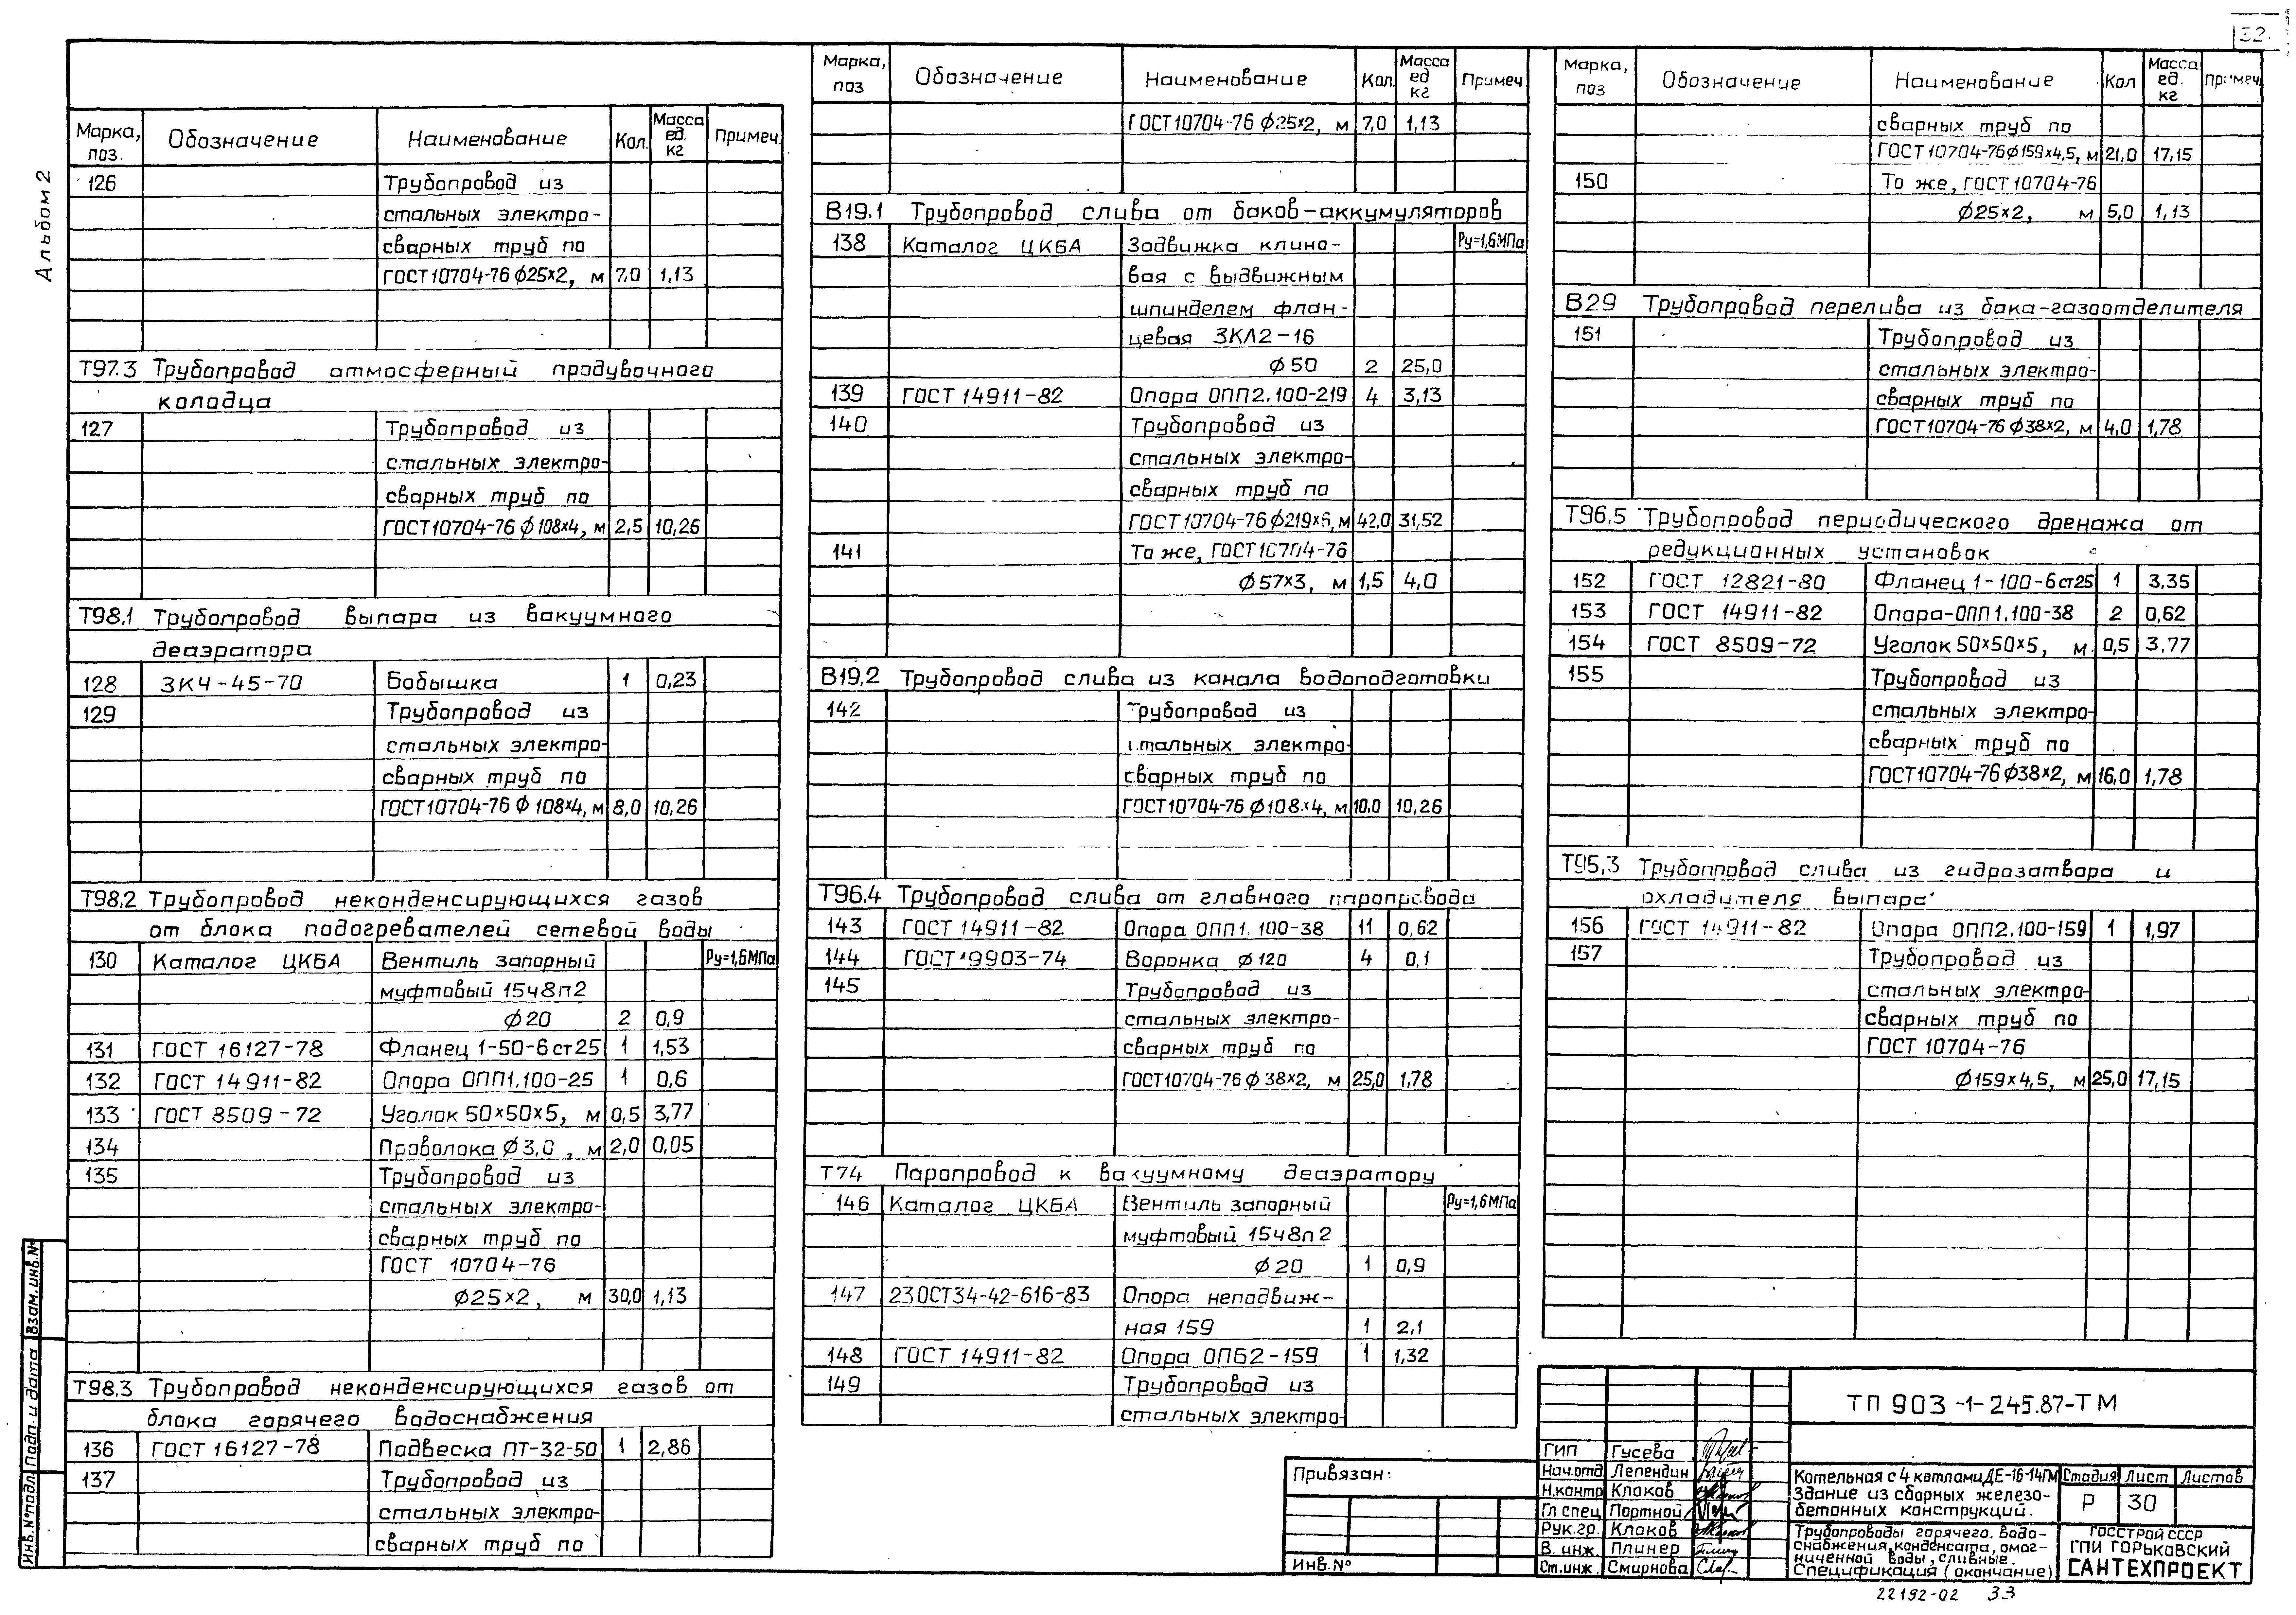 32.
Альбом 2
Марка, поз. Обозначение Наименование Кол. Масса ед. кг Примеч.
126 Трубопровод из
стальных электро-
сварных труб по
ГОСТ 10704-76 Ф25×2, м 7,0 1,13
Т97.3 Трубопровод атмосферный продувочного
колодца
127 Трубопровод из
стальных электро-
сварных труб по
ГОСТ 10704-76 Ф108×4, м 2,5 10,26
Т98.1 Трубопровод выпара из вакуумного
деаэратора
128 ЗКЧ-45-70 Бобышка 1 0,23
129 Трубопровод из
стальных электро-
сварных труб по
ГОСТ 10704-76 Ф108×4, м 8,0 10,26
Т98.2 Трубопровод неконденсирующихся газов
от блока подогревателей сетевой воды
130 Каталог ЦКБА Вентиль запорный Ру=1,6МПа
муфтовый 15ч8п2
Ф20 2 0,9
131 ГОСТ 16127-78 Фланец 1-50-6 ст25 1 1,53
132 ГОСТ 14911-82 Опора ОПП1.100-25 1 0,6
133 ГОСТ 8509-72 Уголок 50×50×5, м 0,5 3,77
134 Проволока Ф3,0, м 2,0 0,05
135 Трубопровод из
стальных электро-
сварных труб по
ГОСТ 10704-76
Ф25×2, м 30,0 1,13
Т98.3 Трубопровод неконденсирующихся газов от
блока горячего водоснабжения
136 ГОСТ 16127-78 Подвеска ПТ-32-50 1 2,86
137 Трубопровод из
стальных электро-
сварных труб по
Марка, поз Обозначение Наименование Кол. Масса ед кг Примеч
ГОСТ 10704-76 Ф25×2, м 7,0 1,13
В19.1 Трубопровод слива от баков-аккумуляторов
138 Каталог ЦКБА Задвижка клино- Ру=1,6МПа
вая с выдвижным
шпинделем флан-
цевая ЗКЛ2-16
Ф50 2 25,0
139 ГОСТ 14911-82 Опора ОПП2.100-219 4 3,13
140 Трубопровод из
стальных электро-
сварных труб по
ГОСТ 10704-76 Ф219×6, м 42,0 31,52
141 То же, ГОСТ 10704-76
Ф57×3, м 1,5 4,0
В19.2 Трубопровод слива из канала водоподготовки
142 Трубопровод из
стальных электро-
сварных труб по
ГОСТ 10704-76 Ф108×4, м 10,0 10,26
Т96.4 Трубопровод слива от главного паропровода
143 ГОСТ 14911-82 Опора ОПП1.100-38 11 0,62
144 ГОСТ 19903-74 Воронка Ф120 4 0,1
145 Трубопровод из
стальных электро-
сварных труб по
ГОСТ 10704-76 Ф38×2, м 25,0 1,78
Т74 Паропровод к вакуумному деаэратору
146 Каталог ЦКБА Вентиль запорный Ру=1,6МПа
муфтовый 15ч8п2
Ф20 1 0,9
147 23 ОСТ34-42-616-83 Опора неподвиж-
ная 159 1 2,1
148 ГОСТ 14911-82 Опора ОПБ2-159 1 1,32
149 Трубопровод из
стальных электро-
Марка, поз Обозначение Наименование Кол Масса ед. кг Примеч.
сварных труб по
ГОСТ 10704-76 Ф159×4,5, м 21,0 17,15
150 То же, ГОСТ 10704-76
Ф25×2, м 5,0 1,13
В29 Трубопровод перелива из бака-газоотделителя
151 Трубопровод из
стальных электро-
сварных труб по
ГОСТ 10704-76 Ф38×2, м 4,0 1,78
Т96.5 Трубопровод периодического дренажа от
редукционных установок
152 ГОСТ 12821-80 Фланец 1-100-6 ст25 1 3,35
153 ГОСТ 14911-82 Опора-ОПП1.100-38 2 0,62
154 ГОСТ 8509-72 Уголок 50×50×5, м 0,5 3,77
155 Трубопровод из
стальных электро-
сварных труб по
ГОСТ 10704-76 Ф38×2, м 16,0 1,78
Т95.3 Трубопровод слива из гидрозатвора и
охладителя выпара
156 ГОСТ 14911-82 Опора ОПП2.100-159 1 1,97
157 Трубопровод из
стальных электро-
сварных труб по
ГОСТ 10704-76
Ф159×4,5, м 25,0 17,15
Взам. инв.№
Подп. и дата
Инв.№подл.
Привязан:
Инв.№
ГИП Гусева
Нач.отд Лепендин
Н.контр Клоков
Гл спец Портной
Рук.гр. Клоков
В. инж. Плинер
Ст.инж. Смирнова
ТП 903-1-245.87-ТМ
Котельная с 4 котлами ДЕ-16-14ГМ
Здание из сборных железо-
бетонных конструкций.
Стадия Лист Листов
Р 30
Трубопроводы горячего водо-
снабжения, конденсата, омаг-
ниченной воды, сливные.
Спецификация (окончание)
ГОССТРОЙ СССР
ГПИ ГОРЬКОВСКИЙ
САНТЕХПРОЕКТ
22192-02 33